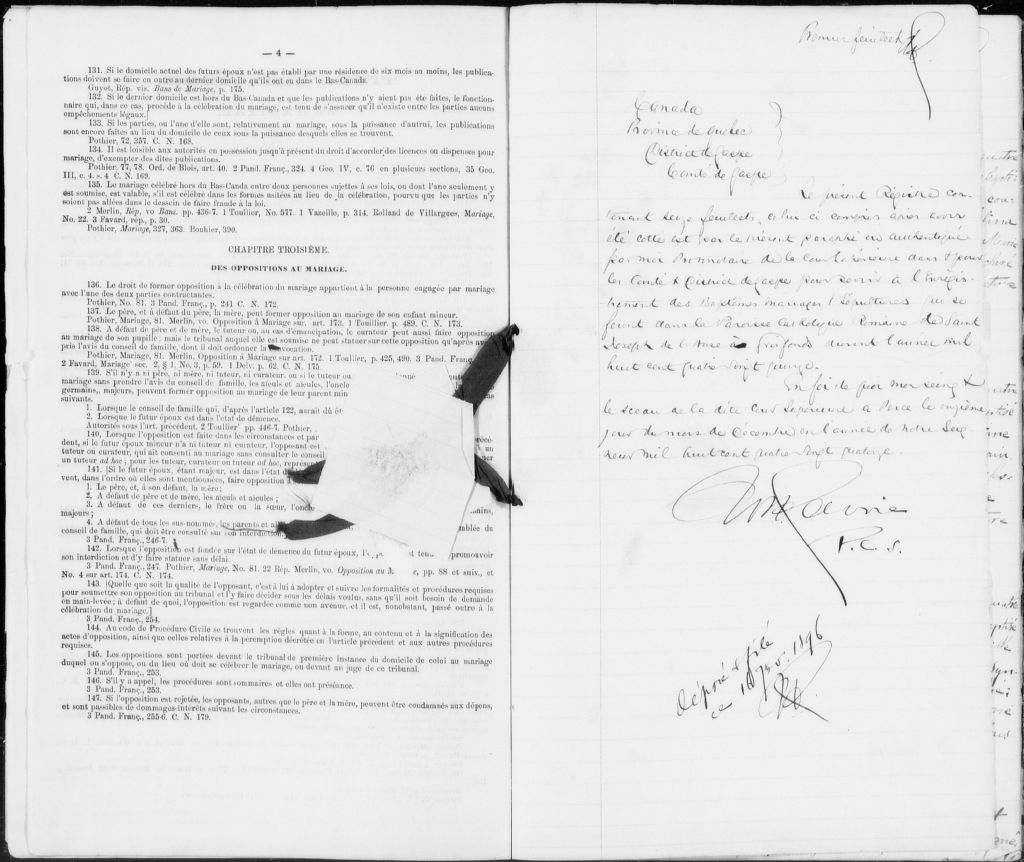 — 4 —
131. Si le domicile actuel des futurs époux n'est pas établi par une résidence de six mois au moins, les publica-
tions doivent se faire en outre au dernier domicile qu'ils ont eu dans le Bas-Canada.
Guyot. Rép. vis. Bans de Mariage, p. 175.
132. Si le dernier domicile est hors du Bas-Canada et que les publications n'y aient pas été faites, le fonction-
naire qui, dans ce cas, procède à la célébration du mariage, est tenu de s'assurer qu'il n'existe entre les parties aucuns
empêchements légaux.]
133. Si les parties, ou l'une d'elle sont, relativement au mariage, sous la puissance d'autrui, les publications
sont encore faites au lieu du domicile de ceux sous la puissance desquels elles se trouvent.
Pothier, 72, 357. C. N. 168.
134. Il est loisible aux autorités en possession jusqu'à présent du droit d'accorder des licences ou dispenses pour
mariage, d'exempter des dites publications.
Pothier, 77, 78. Ord. de Blois, art. 40. 2 Pand. Franç., 324. 4 Geo. IV, c. 76 en plusieurs sections, 35 Geo.
III, c. 4. s. 4 C. N. 169.
135. Le mariage célébré hors du Bas-Canda entre deux personnes sujettes à ses lois, ou dont l'une seulement y
est soumise, est valable, s'il est célébré dans les formes usitées au lieu de la célébration, pourvu que les parties n'y
soient pas allées dans le dessein de faire fraude à la loi.
2 Merlin, Rép, vo Bans. pp. 436-7. 1 Toullier, No. 577. 1 Vazeille, p. 314. Rolland de Villargues, Mariage,
No. 22. 3 Favard, rép., p. 30.
Pothier, Mariage, 327, 363. Bouhier, 390.
CHAPITRE TROISIÈME.
DES OPPOSITIONS AU MARIAGE.
136. Le droit de former opposition à la célébration du mariage appartient à la personne engagée par mariage
avec l'une des deux parties contractantes.
Pothier, No. 81. 3 Pand. Franç., p. 241 C. N. 172.
137. Le père, et à défaut du père, la mère, peut former opposition au mariage de son enfant mineur.
Pothier, Mariage, 81. Merlin, vo. Opposition à Mariage sur. art. 173. 1 Toullier. p. 489. C. N. 173.
138. A défaut de père et de mère, le tuteur ou, au cas d'émancipation, le curateur peut aussi faire opposition
au mariage de son pupille; mais le tribunal auquel elle est soumise ne peut statuer sur cette opposition qu'après avoir
pris l'avis du conseil de famille, dont il doit ordonner la convocation.
Pothier, Mariage, 81. Merlin, Opposition à Mariage sur art. 172. 1 Toullier, p. 425, 490. 3 Pand. Franç
2 Favard, Mariage sec. 2, § 1, No. 3, p. 59. 1 Delv. p. 62. C. N. 175.
139. S'il n'y a ni père, ni mère, ni tuteur, ni curateur, ou si le tuteur ou
mariage sans prendre l'avis du conseil de famille, les aïeuls et aïeules, l'oncle
germains, majeurs, peuvent former opposition au mariage de leur parent min
suivants.
1. Lorsque le conseil de famille qui, d'après l'article 122, aurait dû êt
2. Lorsque le futur époux est dans l'état de démence.
Autorités sous l'art. précédent. 2 Toullier pp. 446-7. Pothier,
140. Lorsque l'opposition est faite dans les circonstances et par
dent, si le futur époux mineur n'a ni tuteur ni curateur, l'opposant est
tuteur ou curateur, qui ait consenti au mariage sans consulter le conseil
un tuteur ad hoc; pour les tuteur, curateur ou tuteur ad hoc, représe
141. [Si le futur époux, étant majeur, est dans l'état d
vent, dans l'ordre où elles sont mentionnées, faire opposition à
1. Le père, et, à son défaut, la mère;
2. A défaut de père et de mère, les aïeuls et aïeules;
3. A défaut de ces derniers, le frère ou la sœur, l'oncle
majeurs;
4. A défaut de tous les sus-nommés, les parents et al mblée du
conseil de famille, qui doit être consulté sur son interdiction
3 Pand. Franç., 246-7.
142. Lorsque l'opposition est fondée sur l'état de démence du futur époux, l' promouvoir
son interdiction et d'y faire statuer sans délai.
3 Pand. Franç., 247. Pothier, Mariage, No. 81. 22 Rép. Merlin, vo. Opposition au M e, pp. 88 et suiv., et
No. 4 sur art. 174. C. N. 174.
143. [Quelle que soit la qualité de l'opposant, c'est à lui à adopter et suivre les formalités et procédures requises
pour soumettre son opposition au tribunal et l'y faire décider sous les délais voulus, sans qu'il soit besoin de demande
en main-levée; à défaut de quoi, l'opposition est regardée comme non avenue, et il est, nonobstant, passé outre à la
célébration du mariage.]
3 Pand. Franç., 254.
144. Au code de Procédure Civile se trouvent les règles quant à la forme, au contenu et à la signification des
actes d'opposition, ainsi que celles relatives à la péremption décrétée en l'article précédent et aux autres procédures
requises.
145. Les oppositions sont portées devant le tribunal de première instance du domicile de celui au mariage
duquel on s'oppose, ou du lieu où doit se célébrer le mariage, ou devant un juge de ce tribunal.
3 Pand. Franç., 253.
146. S'il y a appel, les procédures sont sommaires et elles ont préséance.
3 Pand. Franç., 253.
147. Si l'opposition est rejetée, les opposants, autres que le père et la mère, peuvent être condamnés aux dépens,
et sont passibles de dommages-intérêts suivant les circonstances.
3 Pand. Franç., 255-6. C. N. 179.
Premier feuillet
Canada
Province de Quebec
District de Gaspe
Comté de Gaspe
Le présent Régistre con-
tenant seize feuillets, celui ci compris apres avoir
été cotté est par le présent paraphé ou authentiqué
par moi Protonotaire de la Cour Supérieure dans & pour
les Comté & District de Gaspe pour servir à l'Enrégis-
trement des Baptêmes Mariages & Sépultures qui se
feront dans la Paroisse Catholique Romaine de Saint
Joseph de l'Anse à Grisfond durant l'année mil
huit cent quatre vingt quinze.
En foi de quoi mon seing &
le sceau de la dite Cour Supérieure à Percé le onzième
jour du mois de Décembre en l'année de Notre Seig-
neur mil huit cent quatre vingt quatorze.
P. C. S.
Déposé & filé
ce 10 Janv. 1896